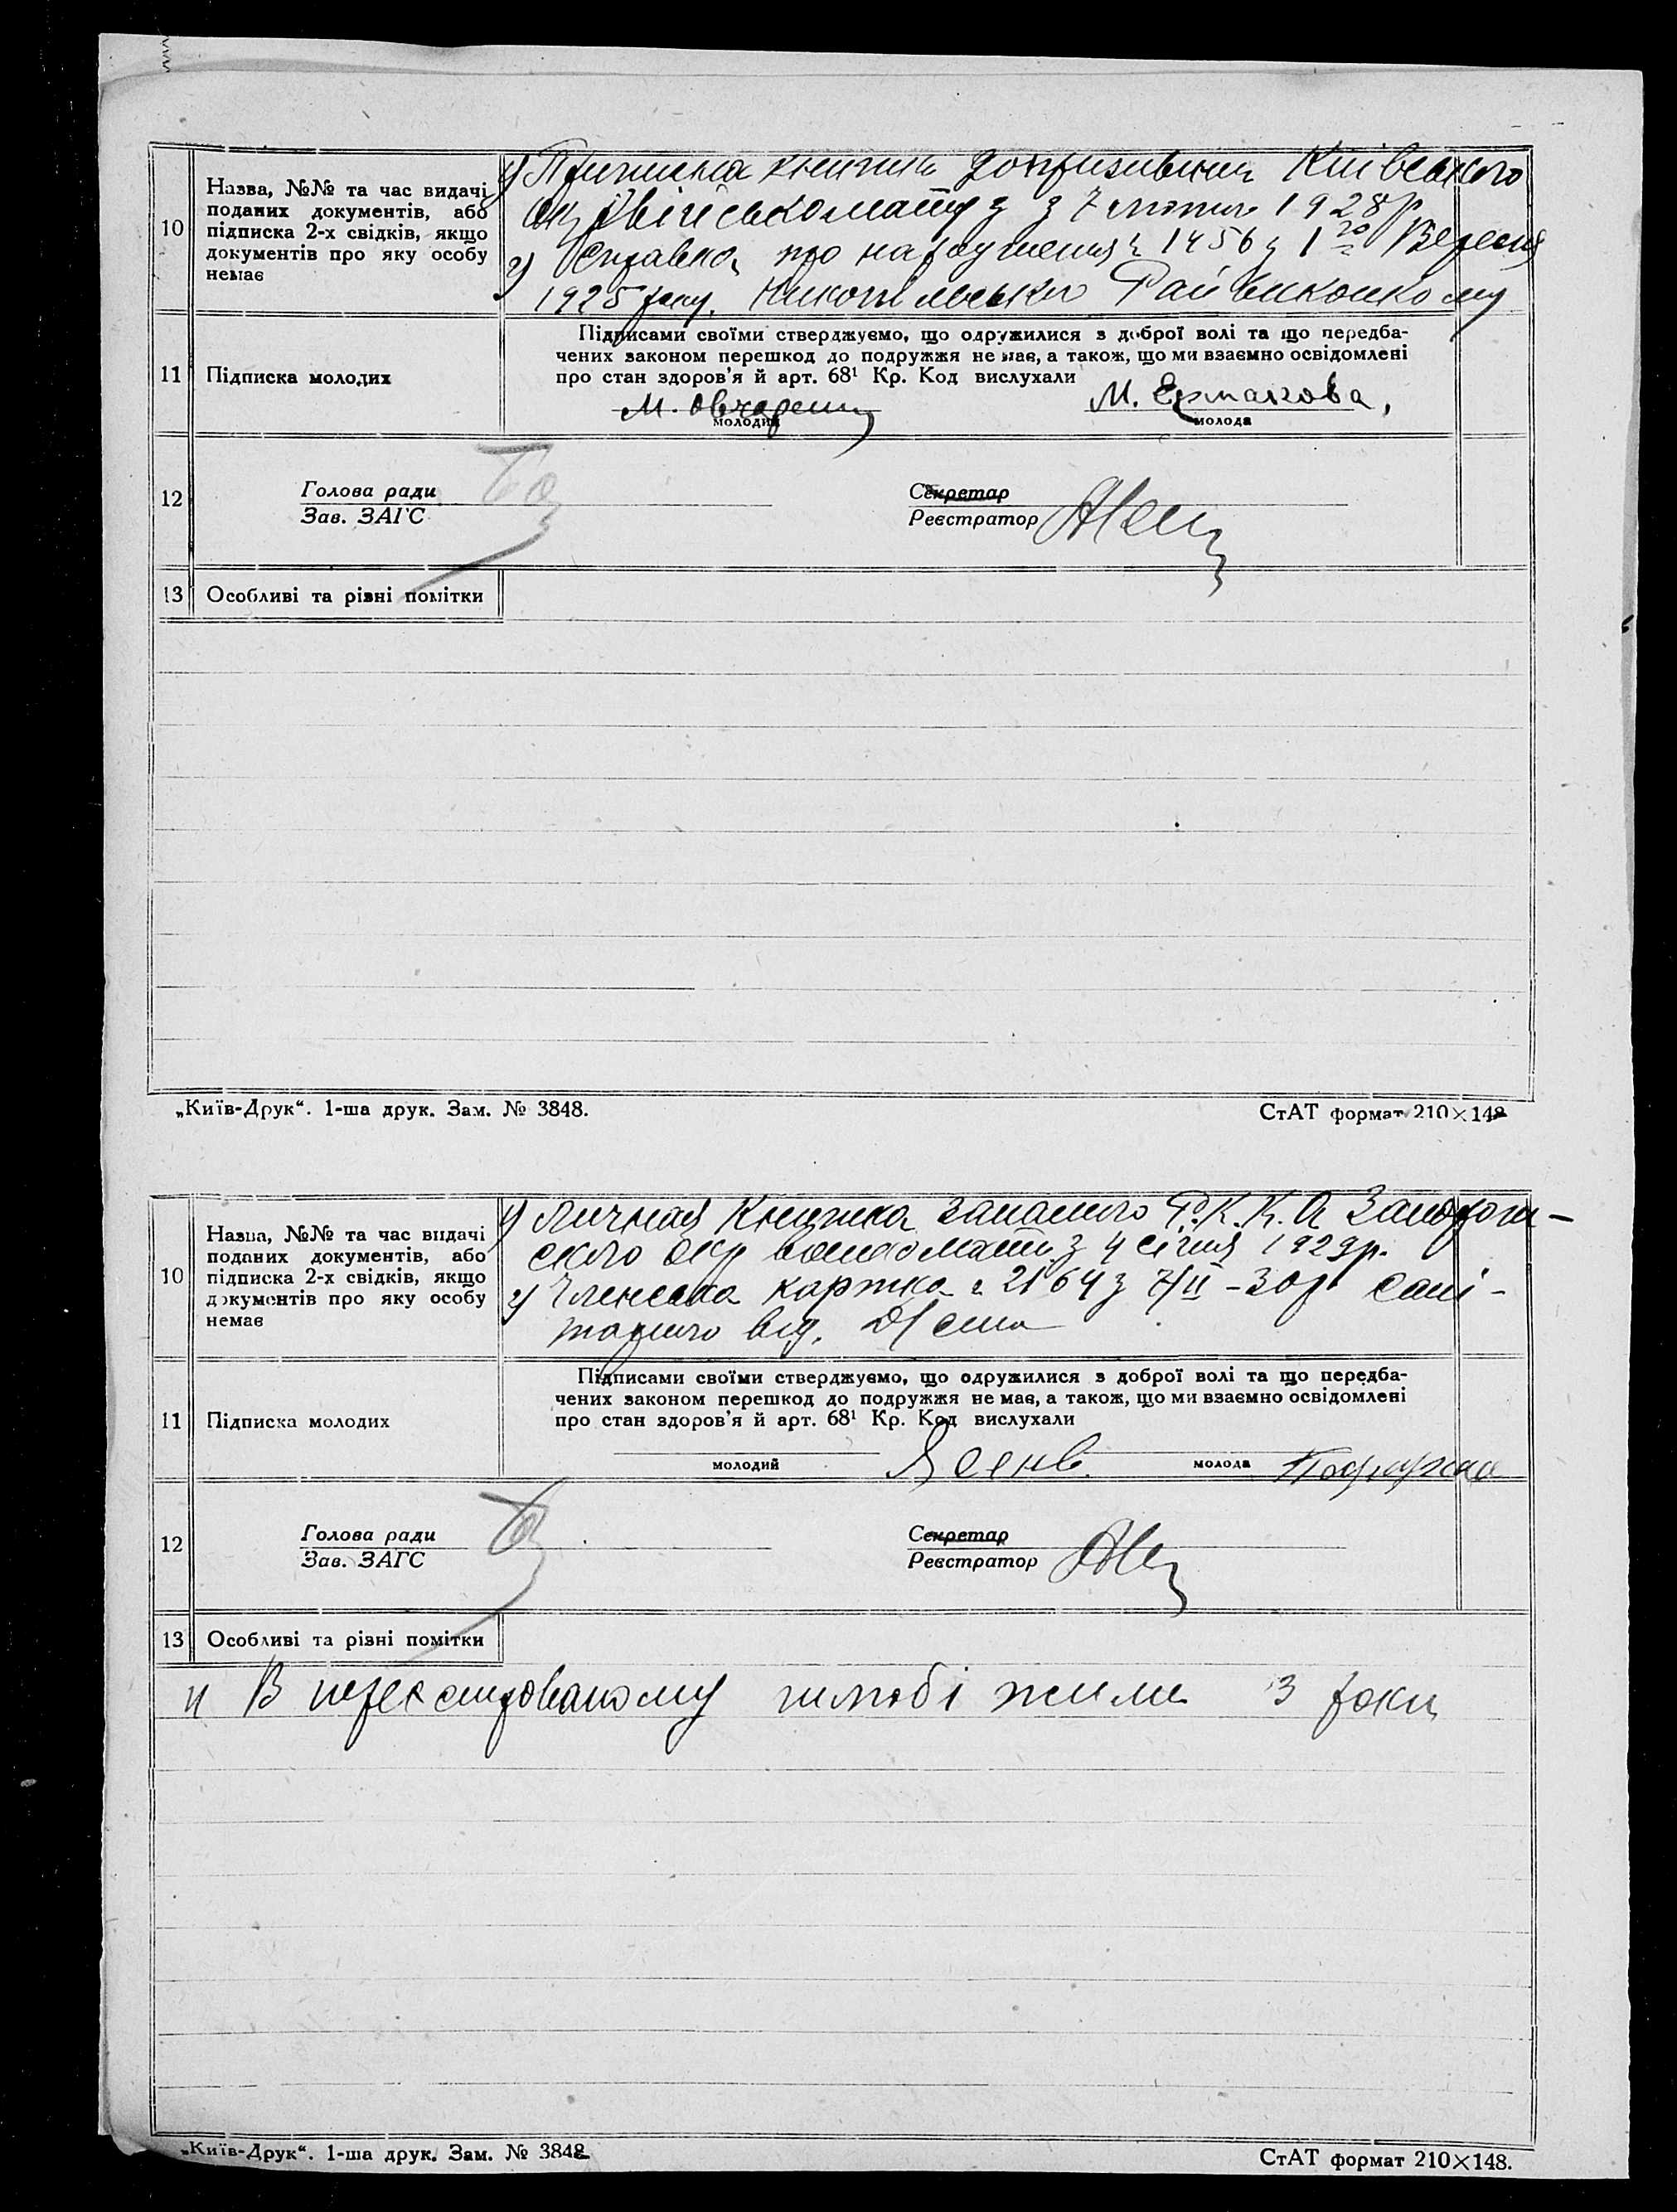 10
Назва, №№ та час видачі
поданих документів, або
підписка 2-х свідків, якщо
документів про яку особу
немає
1) Приписна книжка допризивника Київського
Окрвійськомату з 7 лютого 1928 р
2) Справка про народження 1456 з 1го Вересня
1925 року. Никопільського Райвиконкому
11
Підписка молодих
Підписами своїми стверджуємо, що одружилися з доброї волі та що передба-
чених законом перешкод до подружжя не має, а також, що ми взаємно освідомлені
про стан здоров'я й арт. 68¹ Кр. Код вислухали
М. Овчаренко
молодий
М. Ермакова,
молода
12
Голова ради
Зав. ЗАГС
Секретар
Реєстратор
13
Особливі та різні помітки
„Київ-Друк“. 1-ша друк. Зам. № 3848.
СтАТ формат 210×148
10
Назва, №№ та час видачі
поданих документів, або
підписка 2-х свідків, якщо
документів про яку особу
немає
1) Личная Книжка запасного Р.К.К.А Запорож-
ского Окр военкомату з 4 січня 1929р.
2) Членська картка 2164 з 7/II-30р сані-
тарного від.
11
Підписка молодих
Підписами своїми стверджуємо, що одружилися з доброї волі та що передба-
чених законом перешкод до подружжя не має, а також, що ми взаємно освідомлені
про стан здоров'я й арт. 68¹ Кр. Код вислухали
молодий
молода
12
Голова ради
Зав. ЗАГС
Секретар
Реєстратор
13
Особливі та різні помітки
В шлюбі жили 3 роки
„Київ-Друк“. 1-ша друк. Зам. № 3848
СтАТ формат 210×148.